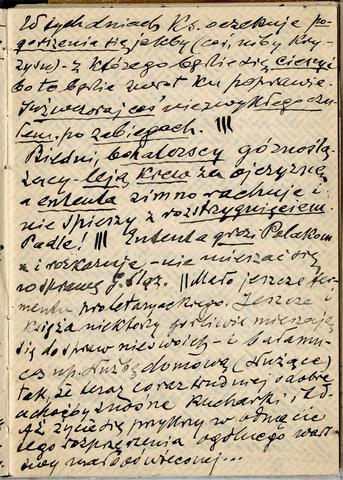 W tych dniach Ks. oczekuje po-
gorszenia się jakby (coś, niby kry-
zysu) - z którego będzie się cieszyć
bo to będzie zwrot ku poprawie.
Już wczoraj coś niezwykłego czu-
łem, po zabiegach. |||
Biedni, bohaterscy górnoślą-
zacy - leją krew za ojczyznę
a ententa zimno rachuje i
nie spieszy z rozstrzygnięciem.
Podłe! ||| Ententa grozi Polakom
- i rozkazuje - nie mieszać się
w sprawę G. Śląz. || Mało jeszcze fer-
mentu proletaryackiego. Jeszcze i
księża niektórzy gorliwie mieszają
się do spraw nieswoich - i bałamu-
cą np. służbę domową (służące)
tak, że teraz coraz trudniej o dobre
uchożby znośne kucharki, itd.
Aż życie się przykrzy w odmęcie
tego rozprzężenia ogólnego warst-
wy mało oświeconej...